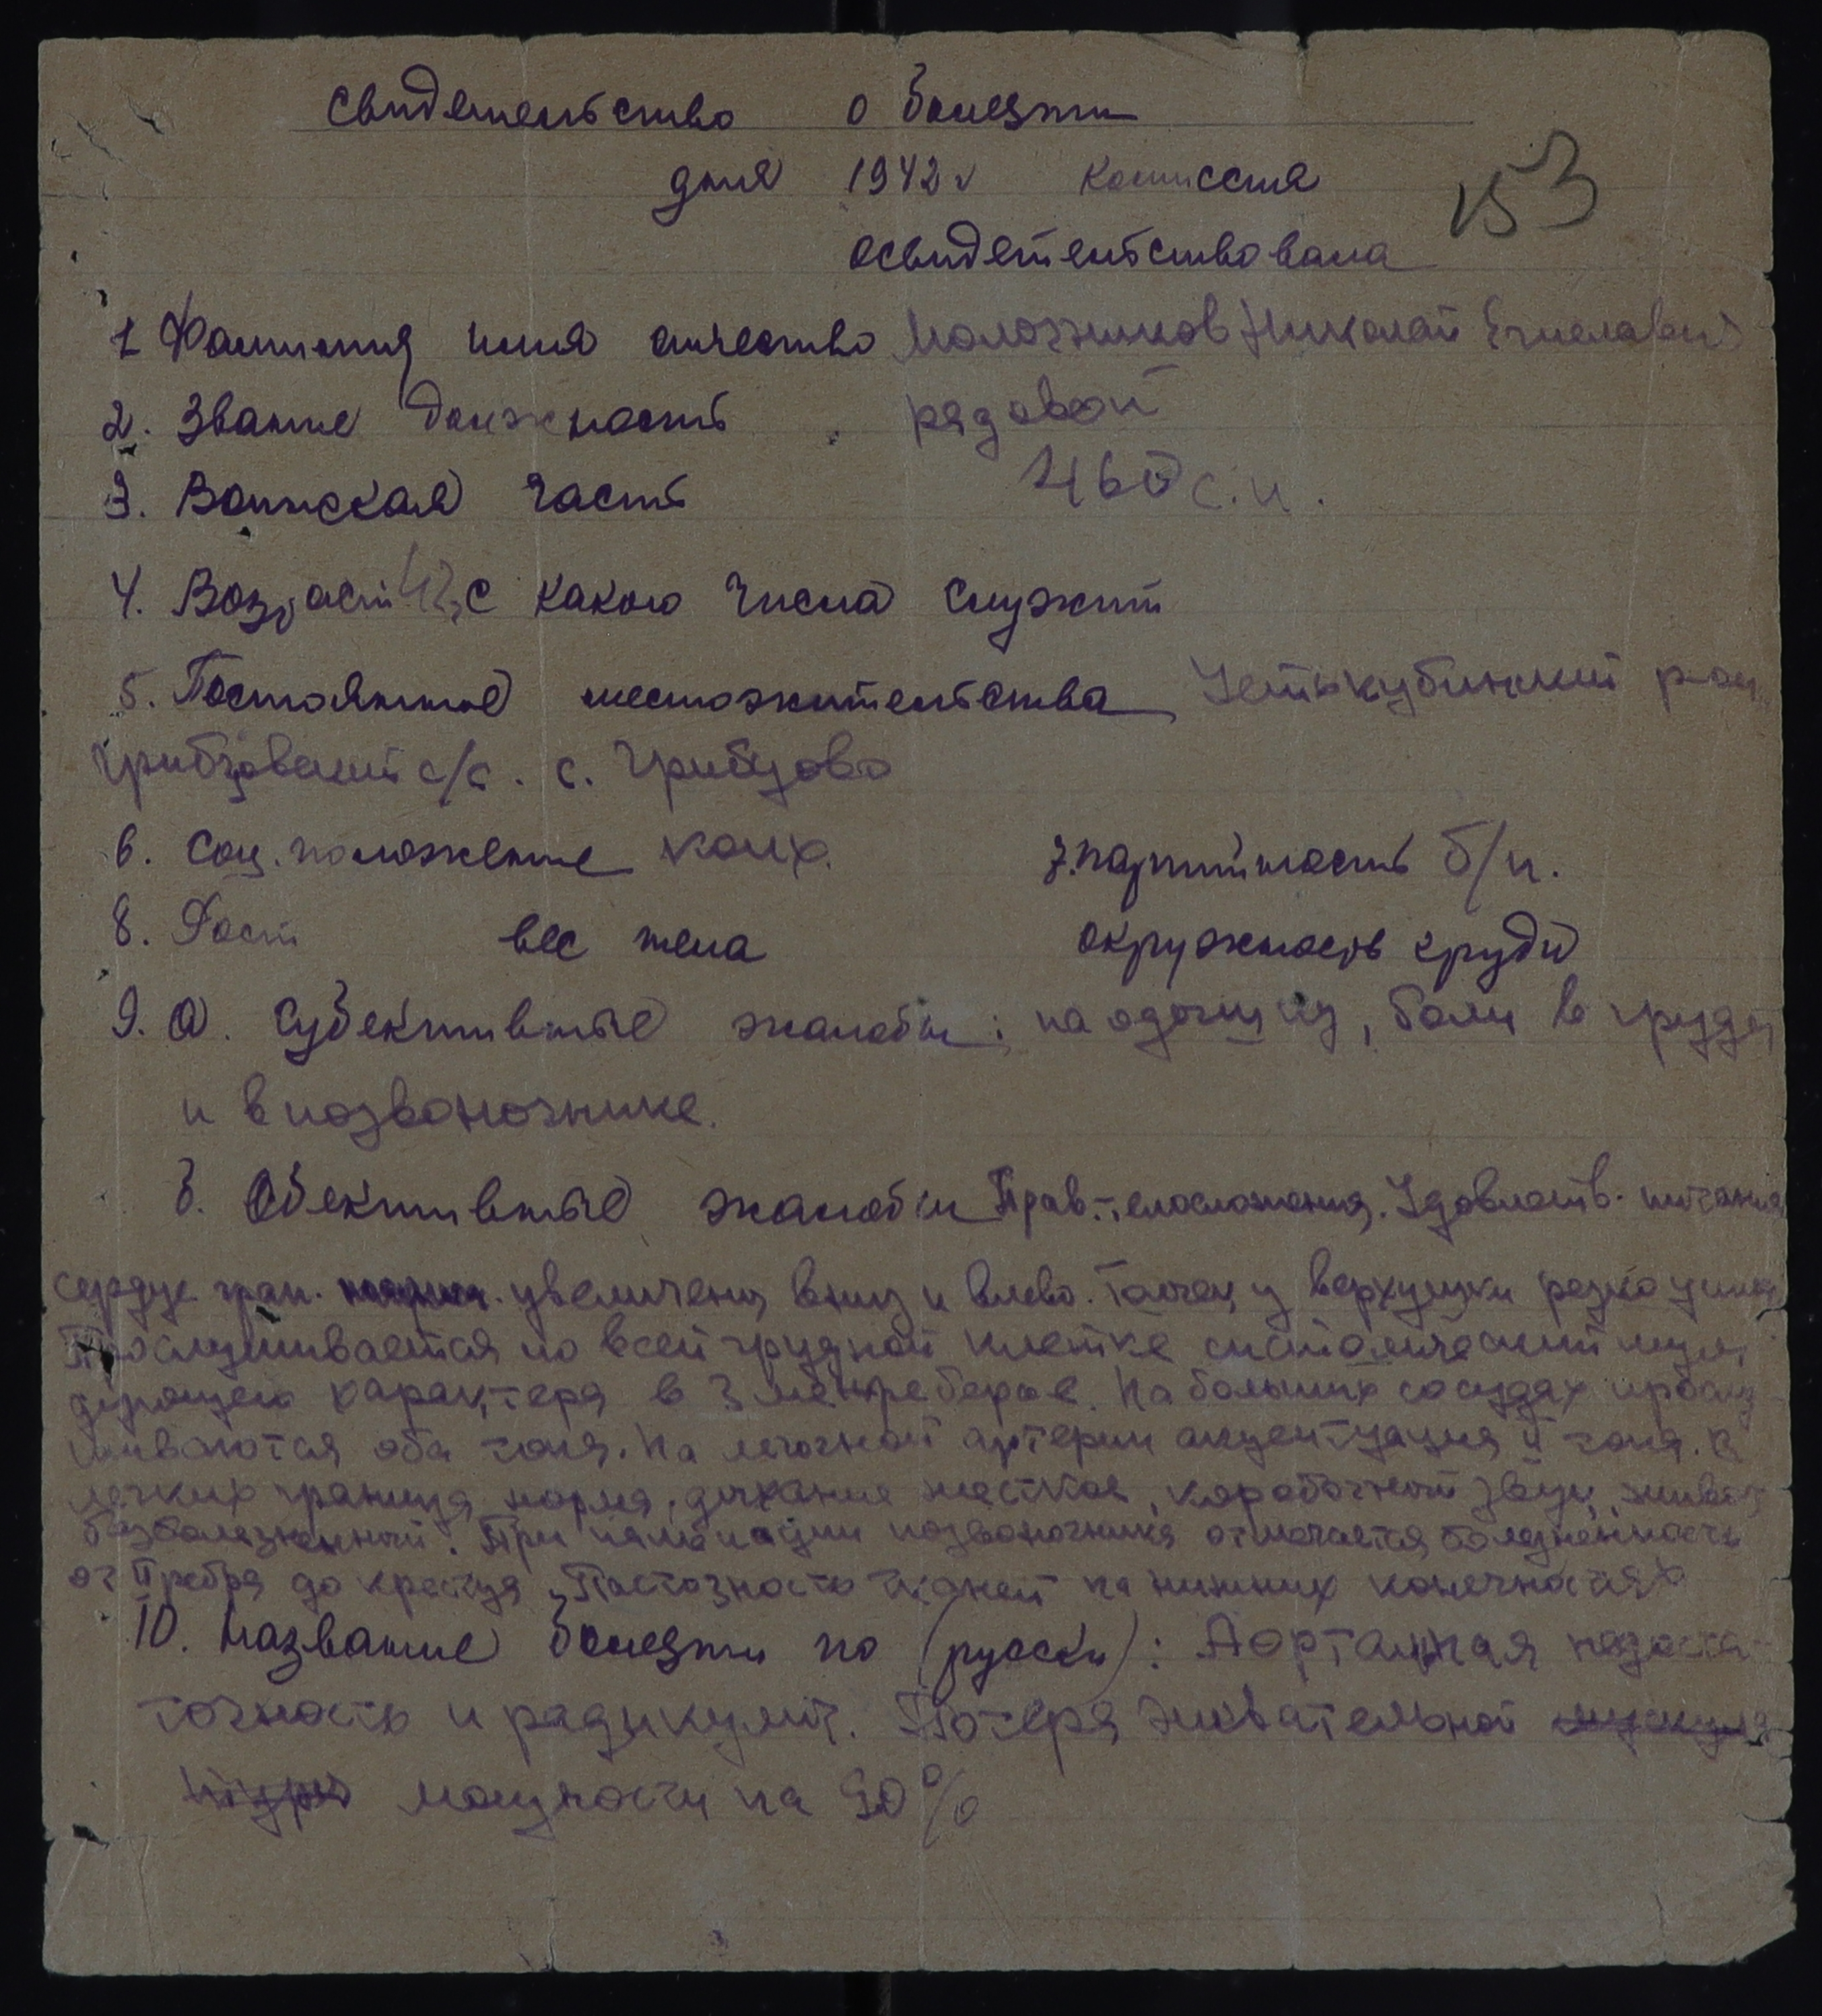 Свидетельство о болезни
дня 1942 г комиссия
153
освидетельствовала
1 Фамилия имя отчество Молочников Николай
2. Звание должность рядовой
3. Воинская часть 460 с.п.
4. Возраст 42, с какого числа служит
5. Постоянное местожительства Устькубинский р-он
Грибцовский с/с. с. Грибцово
6. Соц. положение колх. 7. партийность б/п.
8. Рост вес тела окружность груди
9. а. Субективные жалобы: на одышку, боли в груди
и в позвоночнике.
б. Обективные жалобы Прав. телосложения. Удовлетв. питания
сердце гран. увеличены вниз и влево. Толчек у верхушки резко
Прослушивается по всей грудной клетке систолический шум,
дующего характера в 3 межреберье. На больших сосудах
шиваются оба тона. На легочной артерии акцентуация II тона. В
легких граница норма, дыхание жесткое, коробочный звук, живот
безболезненный. При пальпации позвоночника отмечается болезненность
от II ребра до крестца, Пастозность тканей на нижних конечностях
10. Название болезни по (русски): Аортальная недоста-
точность и радикулит. Потеря жевательной
мощности на 90%